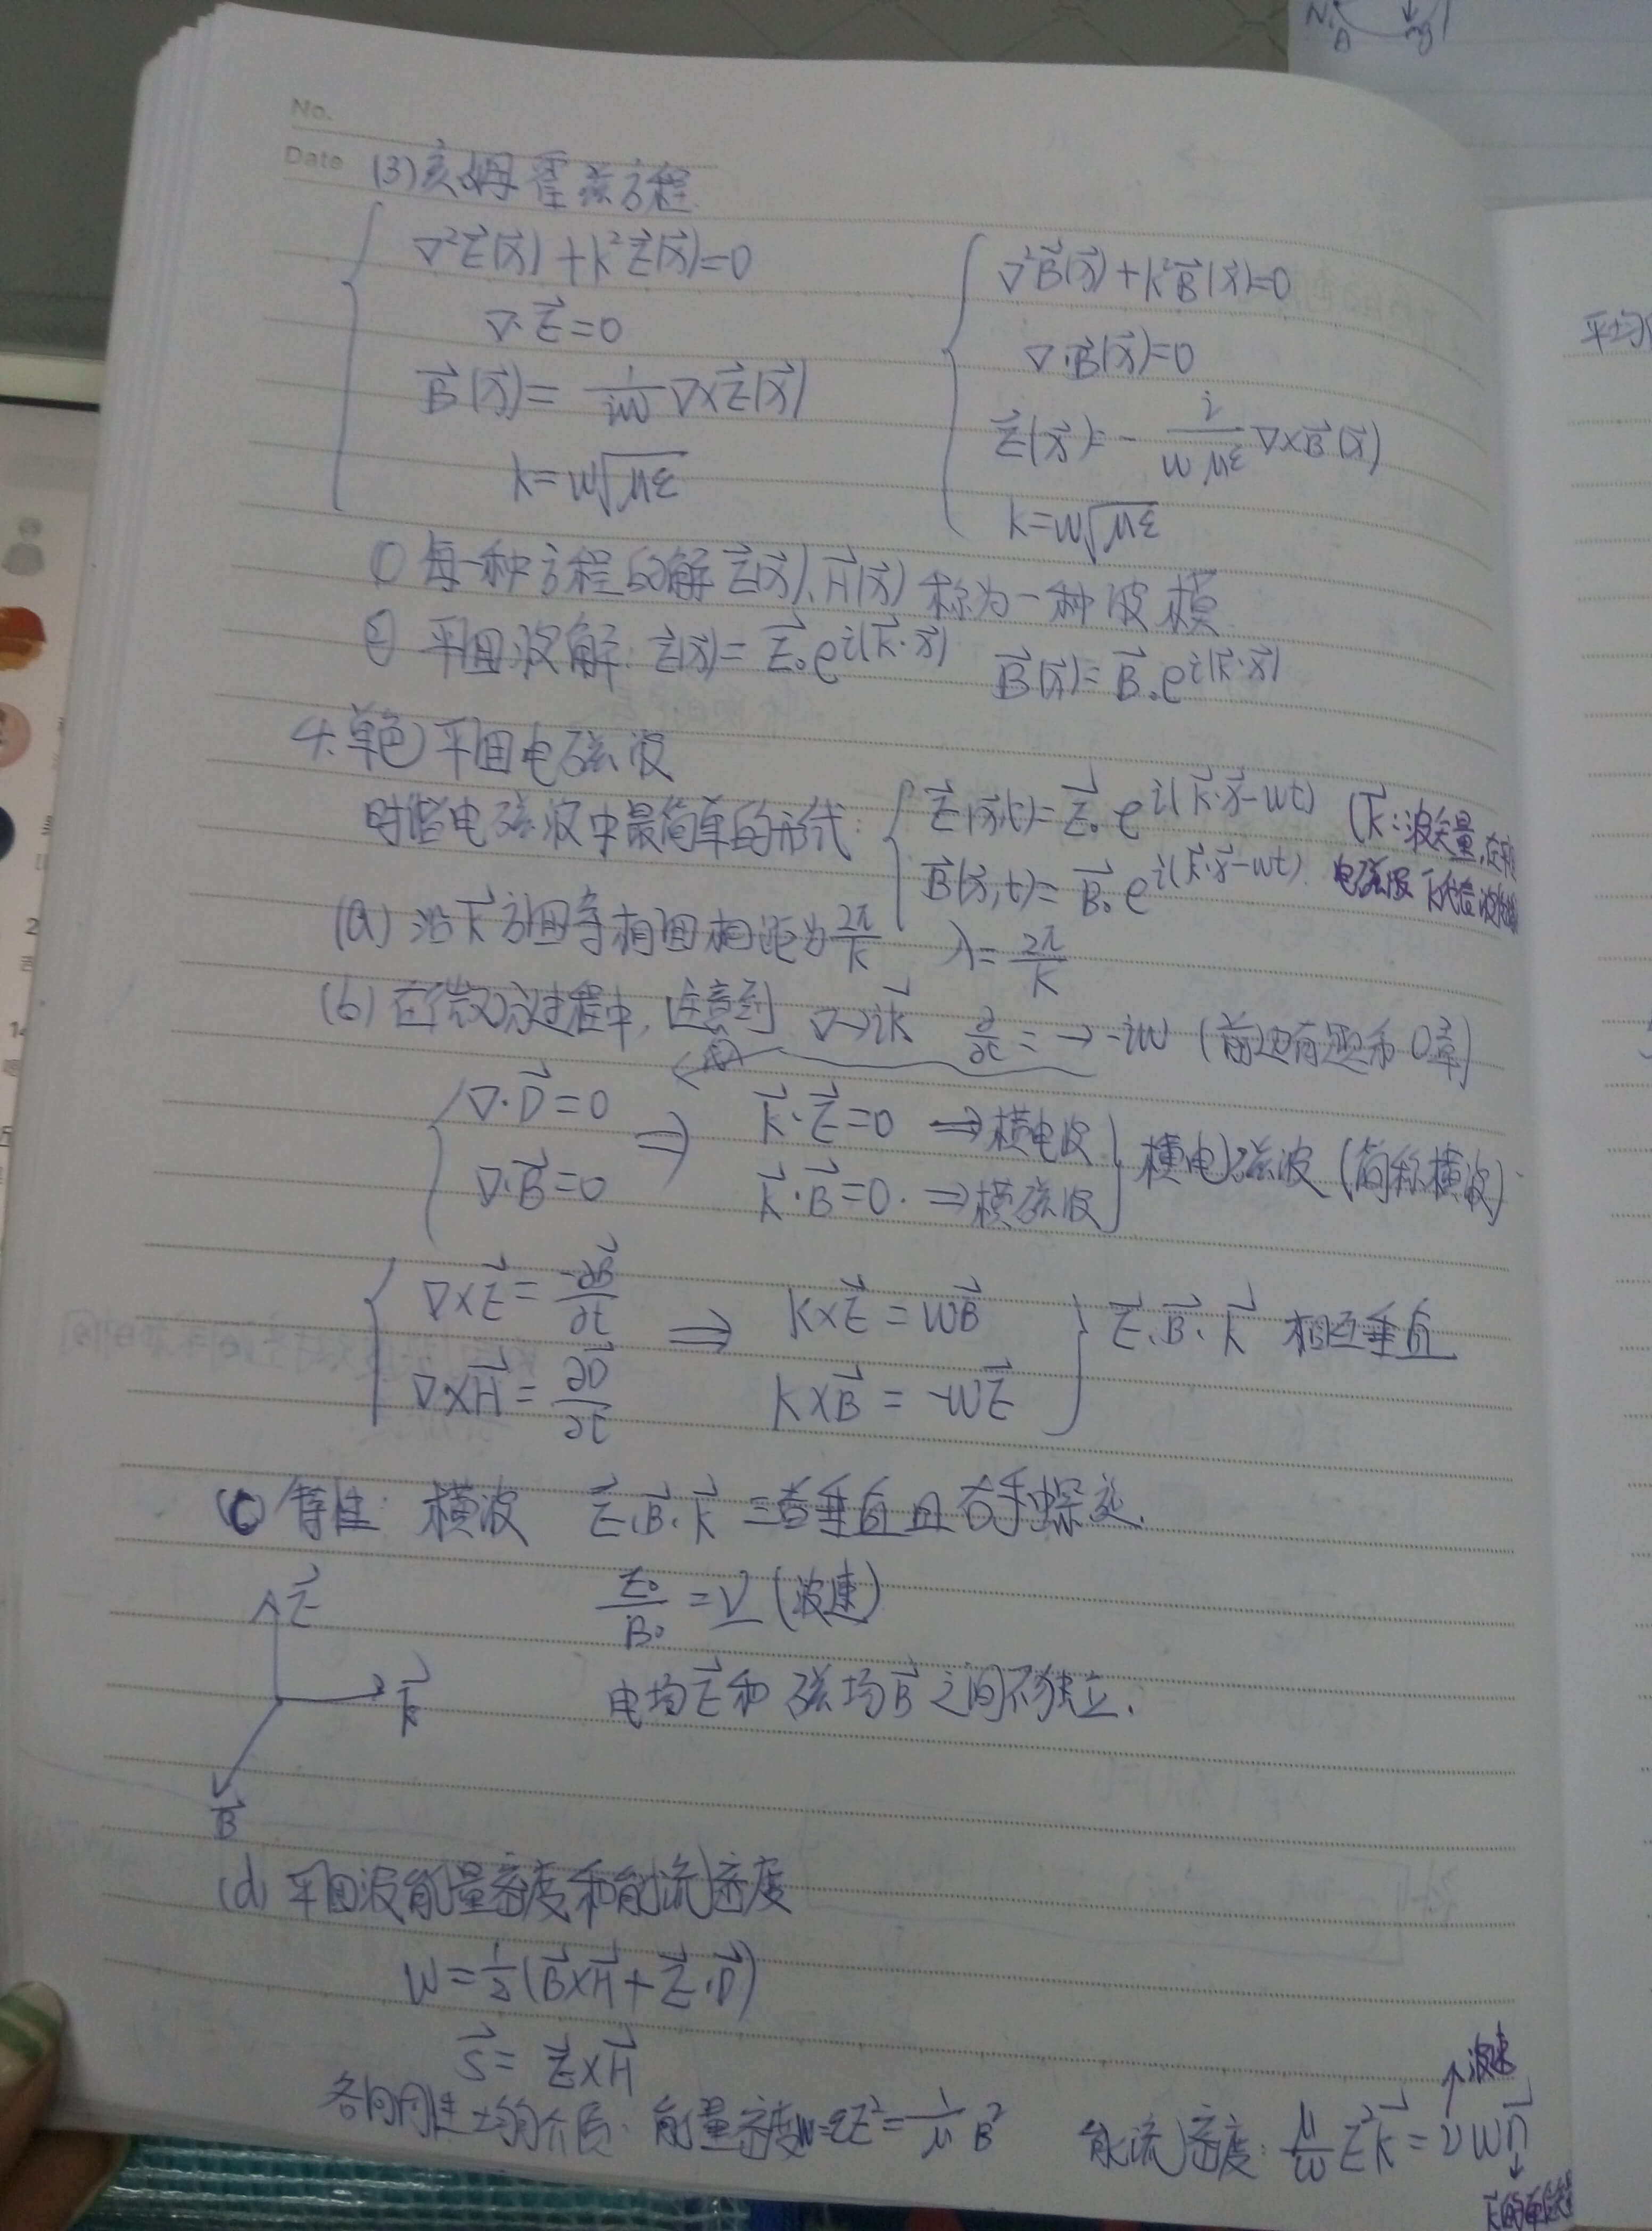 No.
Date (3) 亥姆霍兹方程
∇²E⃗(x⃗)+k²E⃗(x⃗)=0
∇·E⃗=0
B⃗(x⃗)= 1/iω ∇×E⃗(x⃗)
k=ω√με
∇²B⃗(x⃗)+k²B⃗(x⃗)=0
∇·B⃗(x⃗)=0
E⃗(x⃗)=- i/ωμε ∇×B⃗(x⃗)
k=ω√με
① 每一种方程的解E⃗(x⃗)、H⃗(x⃗) 称为一种波模
② 平面波解: E⃗(x⃗)=E⃗₀e^i(k⃗·x⃗) B⃗(x⃗)=B⃗₀e^i(k⃗·x⃗)
4.单色平面电磁波
时谐电磁波中最简单的形式:
E⃗(x⃗,t)=E⃗₀ e^i(k⃗·x⃗-ωt) (k⃗:波矢量,
B⃗(x⃗,t)=B⃗₀ e^i(k⃗·x⃗-ωt). 电磁波
(a) 沿k⃗方向等相面相距为2π/k λ=2π/k
(b) 在微分过程中, 注意到 ∇→ik⃗ ∂/∂t=→-iω (前边有
∇·D⃗=0
∇·B⃗=0
⇒ k⃗·E⃗=0 ⇒横电波
k⃗·B⃗=0. ⇒横磁波
横电磁波(简称横波)
∇×E⃗=-∂B⃗/∂t
∇×H⃗=∂D⃗/∂t
⇒ k×E⃗=ωB⃗
k×B⃗=-ωE⃗
E⃗、B⃗、k⃗ 相互垂直
(c) 特性: 横波 E⃗、B⃗、k⃗ 三者垂直且右手螺旋.
E₀/B₀=v (波速)
电场E⃗和磁场B⃗之间不独立.
E⃗
k⃗
B⃗
(d) 平面波能量密度和能流密度
w=1/2(B⃗×H⃗+E⃗·D⃗)
S⃗= E⃗×H⃗
波速
各向同性均匀介质: 能量密度w=εE²=1/μ B² 能流密度: μ/ω E²k⃗=vwn⃗
平均